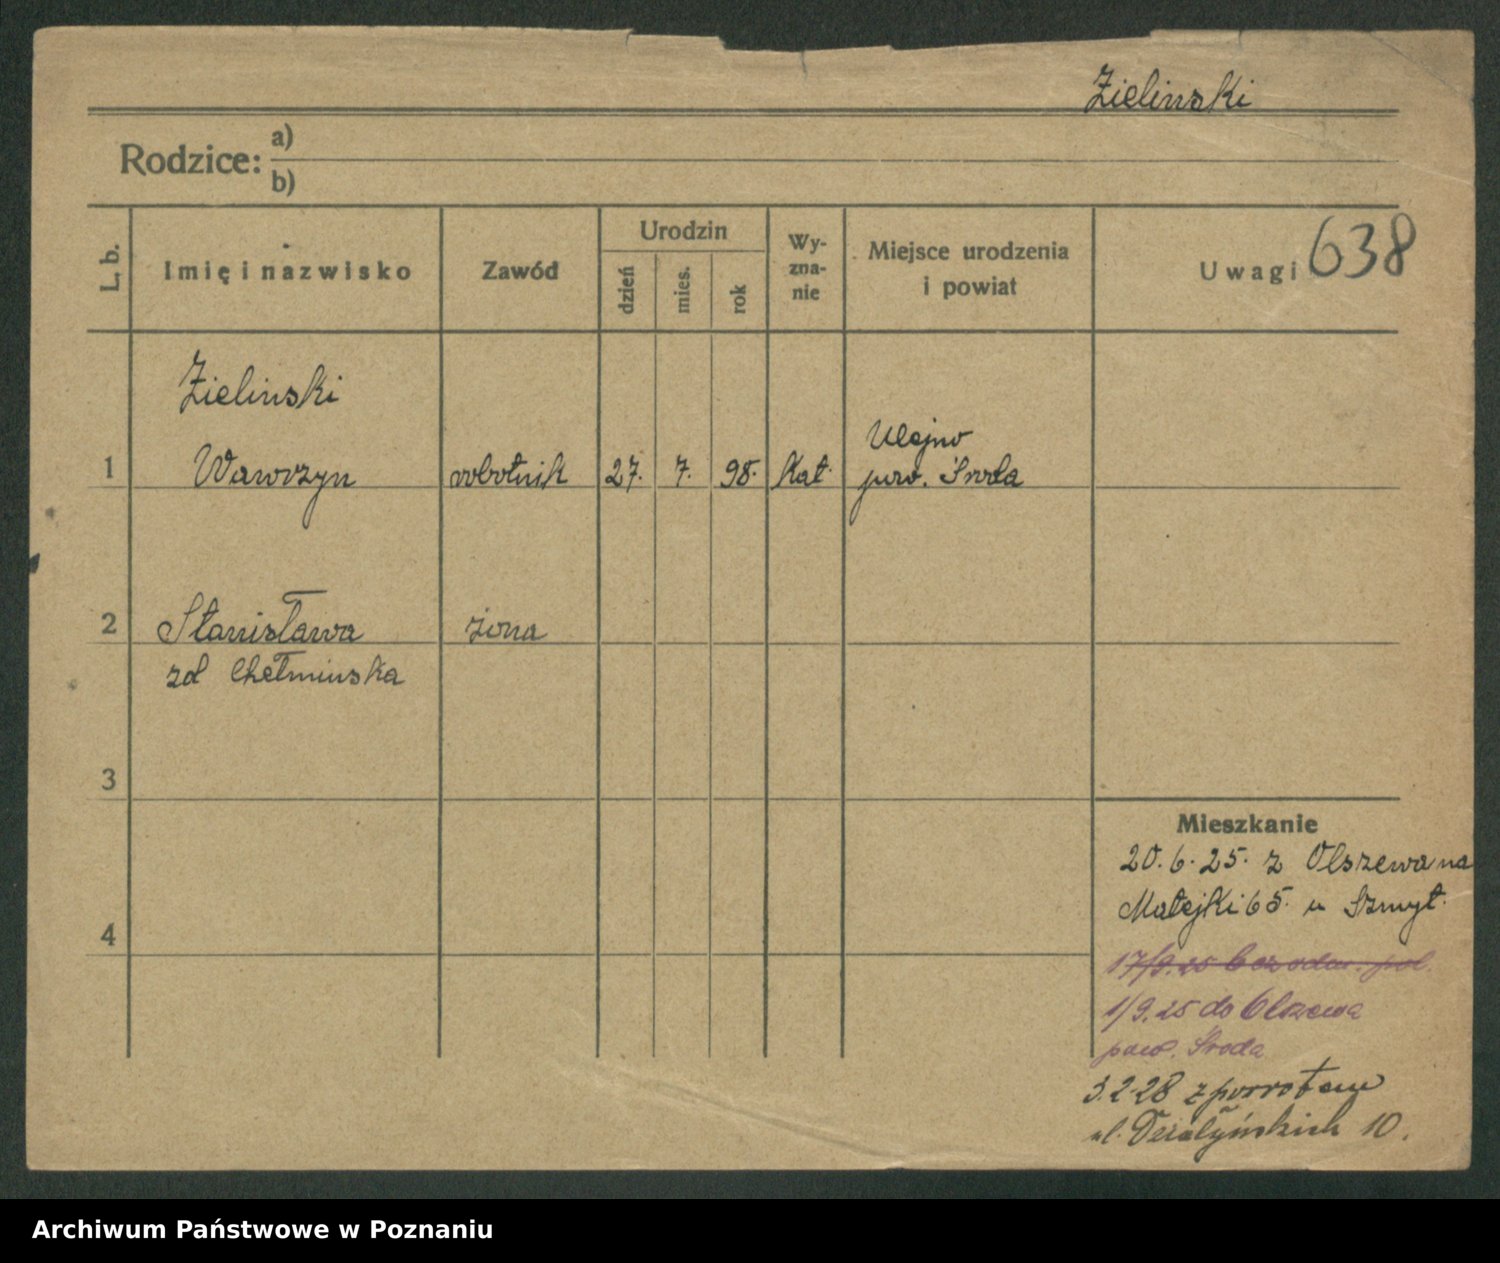 Zielinski
Rodzice: a)
b)
L. b.
Imię i nazwisko
Zawód
Urodzin
dzień
mies.
rok
Wy-
zna-
nie
Miejsce urodzenia
i powiat
Uwagi 638
Zielinski
1 Wawrzyn robotnik 27. 7. 98. Kat.
Ulejno
pow. Środa
2 Stanisława żona
zd Chełminska
3
4
Mieszkanie
20. 6. 25. z Olszewa na
Matejki 65. u Szmyt.
17/9. 25 bez odm. pol.
1/9. 25 do Olszewa
pow. Środa
3.2.28 z powrotem
ul. Działyńskich 10.
Archiwum Państwowe w Poznaniu